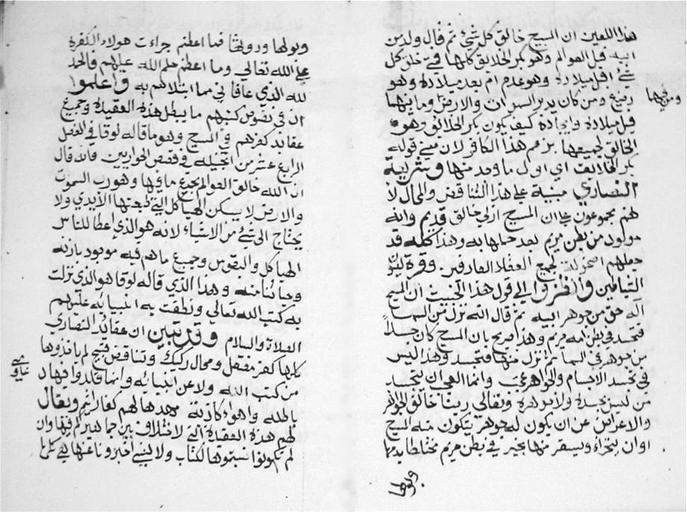 هذا اللعين ان المسيح خالق كل شي ثم قال ولد من
ابيه قبل العوالم وهو بكر الخلايق كلها في خلق كل
شي اقبل ميلاده وهو عدم ام بعد ميلاده وهو
رضيع ومن كان يدبر السموات والارض وما بينهما
ومن فيهما
قبل ميلاده وايجاده كيف يكون بكر الخلايق وهو
الخالق لجميعها بزعم هذا الكافر لان معني قوله
بكر الخلايق اي اول ما وجد منها وشريعة
النصارى مبنية على هذا التناقض والمحال لا
نهم مجموعون على ان المسيح ازلي خالق قديم وانه
مولود من بطن مريم بعد حملها به وهذا كله قد
جعلهم اضحوكة لجميع العقلا العارفين وقرة لعيون
الشياطين وانظروا الى قول هذا الخبيث ان المسيح
اله حق من جوهر ابيه ثم قال انه نزل من السما
فتجسد في بطن امه مريم وهذا صريح بان المسيح كان جسدا
من جوهر في السما ثم نزل منها فتجسد وهذا ليس
في تجسد الاجسام والجواهر عجب وانما العجب ان يتجسد
من ليس بجسد ولا جوهر وتعالى ربنا خالق الجواهر
والاعراض عن ان يكون له جوهر يتكون منه المسيح
او ان يتجزا ويستقر منها بجزء في بطن مريم مختلطا بدمها
وبولها
وبولها وروثها فما اعظم جراءت هولاء الكفرة
على الله تعالى وما اعظم حلم الله عليهم فالحمد
لله الذي عافاني مما ابتلاهم به واعلموا
ان في نصوص كتبهم ما يبطل هذه العقيدة وجميع
عقايد كفرهم في المسيح وهو ما قاله لوقا في الفصل
الرابع عشر من انجيله وقصص الحواريين وانه قال
ان الله خالق العوالم بجميع ما فيها وهو رب السموات
والارض لا يسكن الهياكل التي صنعتها الايدي ولا
يحتاج الى شي من الاشياء لانه هو الذي اعطا للناس
الحياة كل والنفوس وجميع ما هم فيه موجود باذنه
وحياتنا منه وهذا الذي قاله لوقا هو الذي نزلت
به كتب الله تعالى ونطقت به انبيائه عليهم
الصلاة والسلام وقد تبين ان عقايد النصارى
كلها كفر مفتعل ومحال ركيك وتناقض قبيح لم ياخذوها
من كتب الله ولا عن انبيائه وانما قلدوا فيها
باطلة واهواء كاذبة مهدها لهم كفارهم ويقال
لهم هذه العقيدة التي لا اختلاف بين جماهيركم فيها وان
لم يكونوا نسبتموها لكتاب ولا لنبي اخبرونا عنها هي كلها